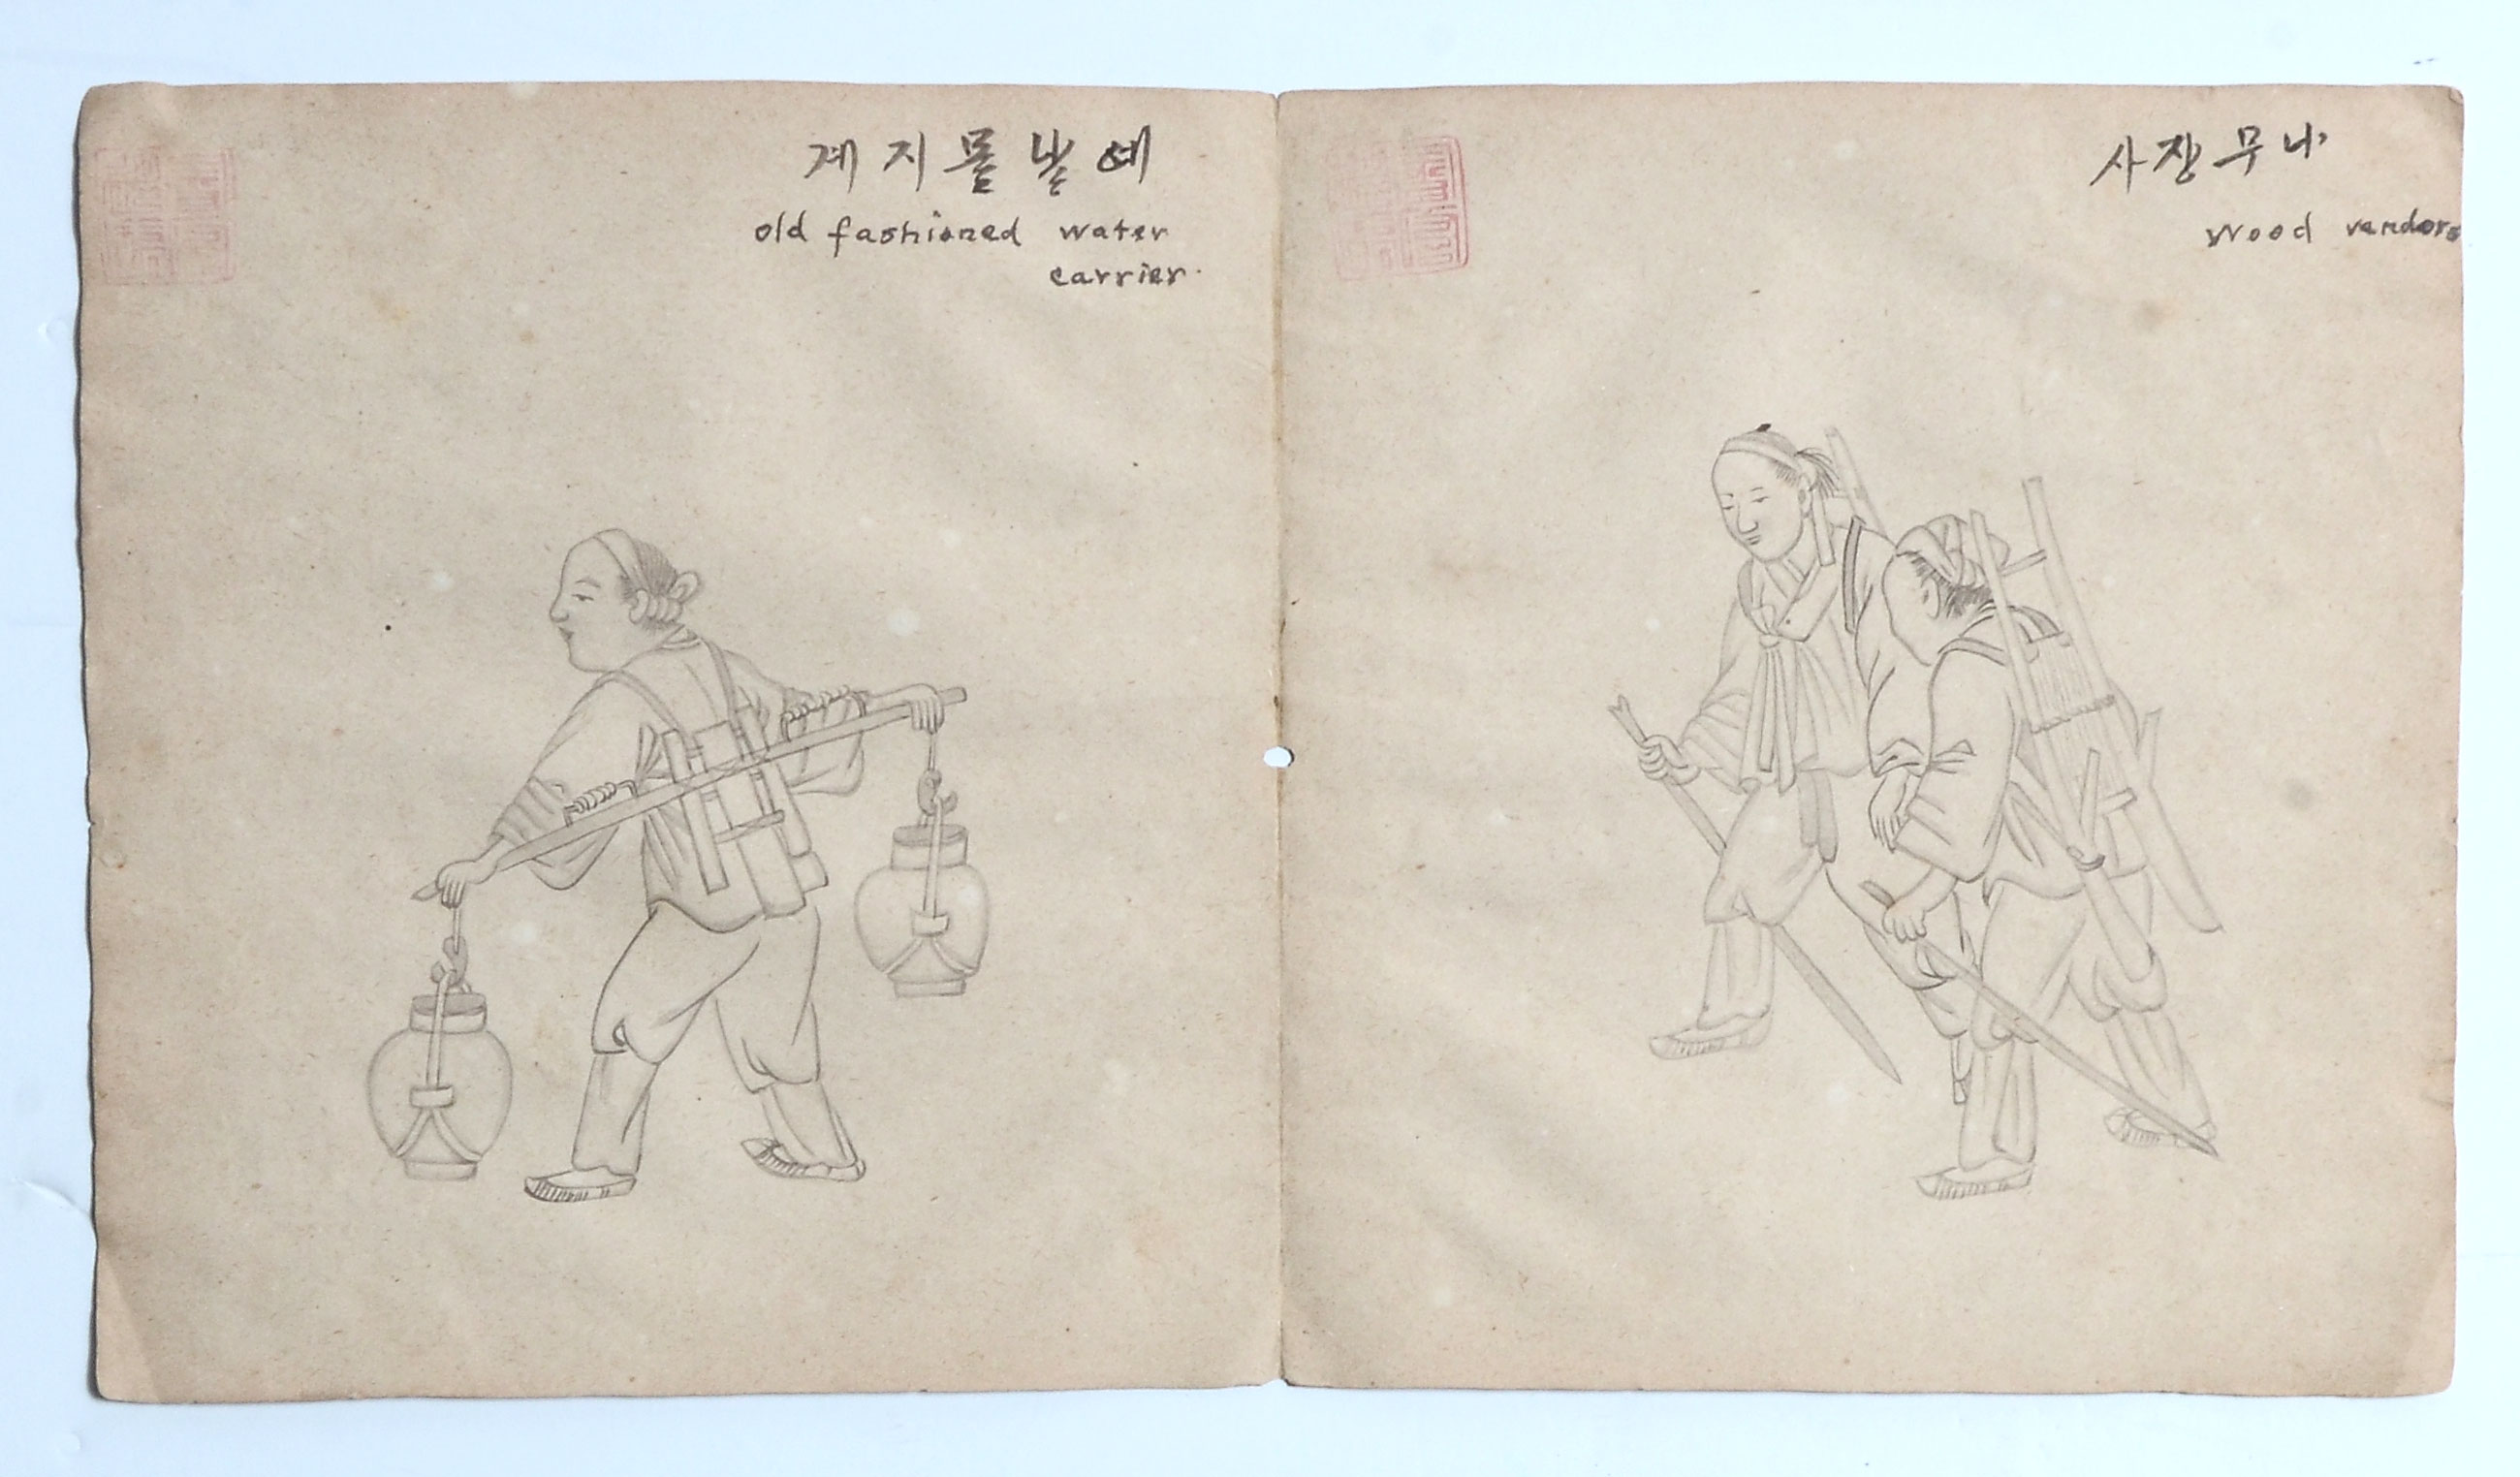 예날물지게
old fashioned water
carrier.
나무쟝사
Wood vendors